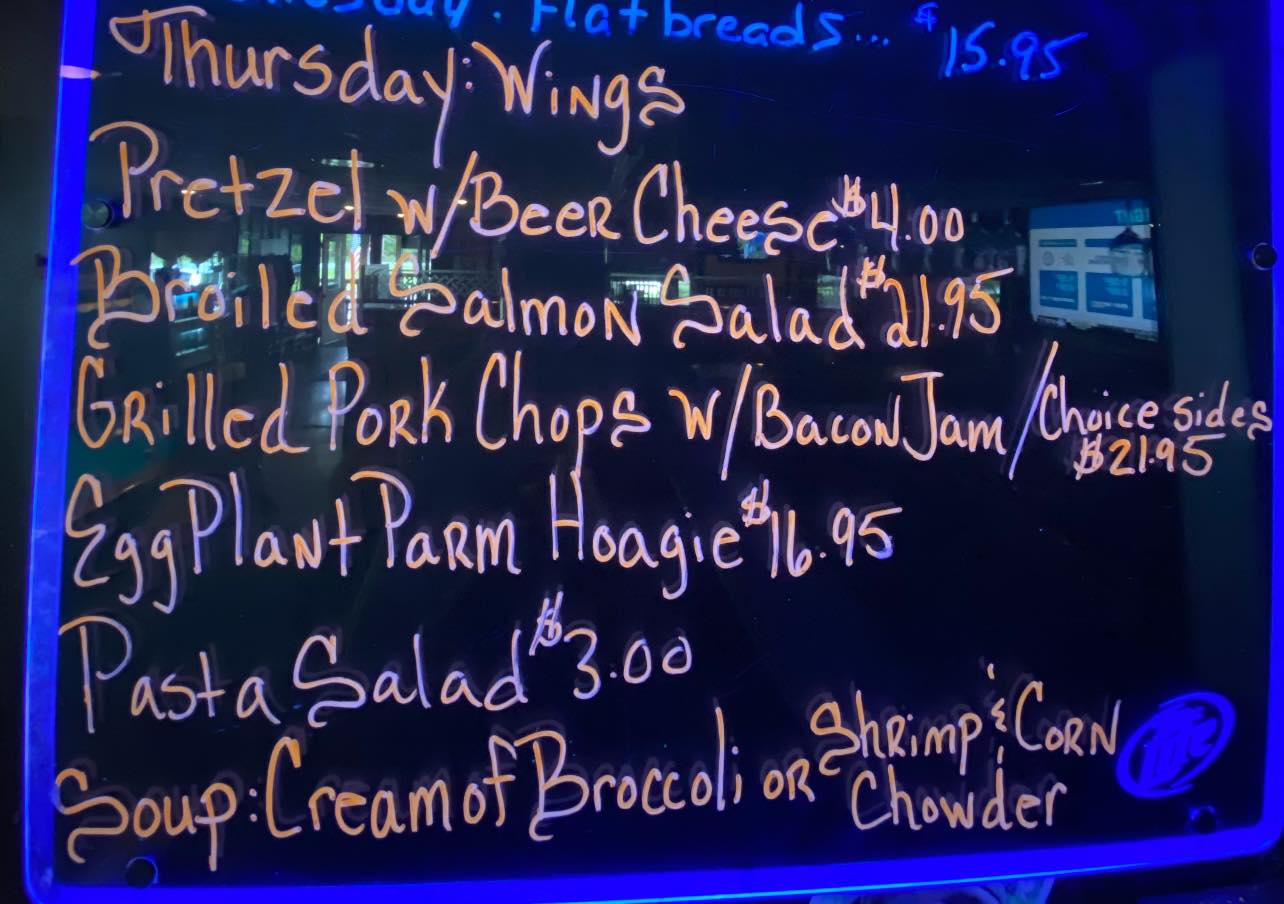 Flatbreads... $15.95
Thursday: Wings
Pretzel w/Beer Cheese $4.00
Broiled Salmon Salad $21.95
Grilled Pork Chops w/Bacon Jam /Choice sides
$21.95
EggPlant Parm Hoagie $16.95
Pasta Salad $3.00
Soup: Cream of Broccoli or Shrimp & Corn
Chowder
Lite